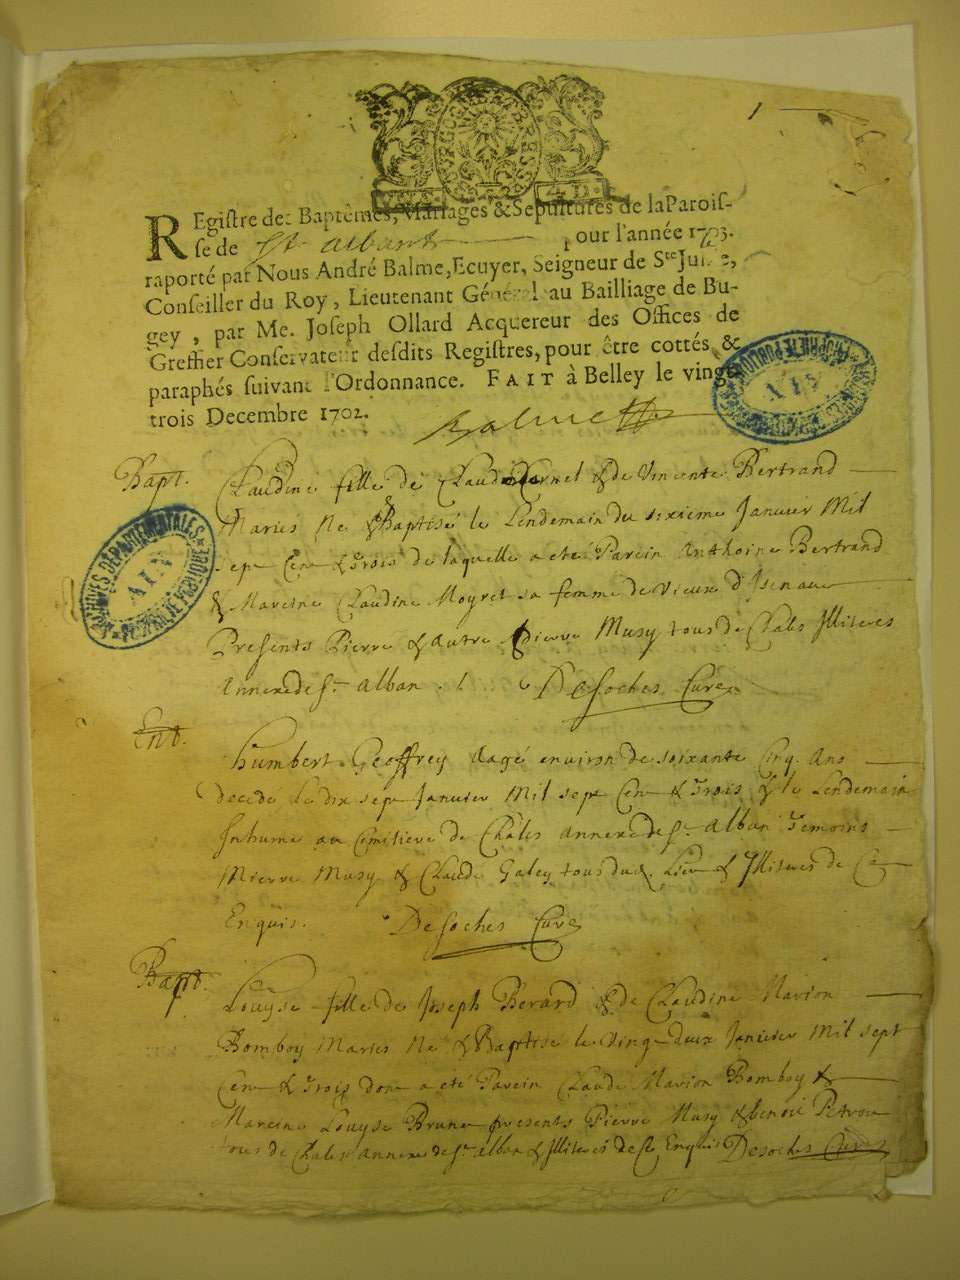 1
REgistre des Baptêmes, Mariages & Sepultures de la Parois-
se de St Alban pour l'année 1703.
raporté par Nous André Balme, Ecuyer, Seigneur de Ste Julie,
Conseiller du Roy, Lieutenant Général au Bailliage de Bu-
gey, par Me. Joseph Ollard Acquereur des Offices de
Greffier Conservateur desdits Registres, pour être cottés, &
paraphés suivant l'Ordonnance. FAIT à Belley le vingt-
trois Decembre 1702.
Balme
ARCHIVES DÉPARTEMENTALES
AIN
PROPRIÉTÉ PUBLIQUE
Bapt.
Claudine fille de Claude Cornet & de Vincente Bertrand
Mariés Né & Baptisé le Lendemain du sixieme Janvier Mil
sept Cent & Trois de laquelle a eté Parein Anthoine Bertrand
& Mareine Claudine Moyret sa femme de Vieux d'Isenave
Presents Pierre & autre Pierre Musy tous de Chales Illiteres
Annexe de St. Alban.
Desoches Curé
Ent.
Humbert Geoffrey Aagé environ de soixante Cinq Ans
decedé le dix sept Janvier Mil sept Cent & Trois & le Lendemain
Inhumé au Cemitiere de Chales annexe de St. Alban Temoins
Pierre Musy & Claude Galey tous dud. Lieu & Illiteres de Ce
Enquis. Desoches Curé
Bapt.
Louyse fille de Joseph Berard & de Claudine Marion
Bomboy Mariés Né & Baptisé le Vingt deux Janvier Mil sept
Cent & Trois dont a eté Parein Claude Marion Bomboy &
Mareine Louyse Brunet presents Pierre Musy & benoit
tous de Chales annexe de St. alban & Illiteres de Ce Enquis Desoches Curé